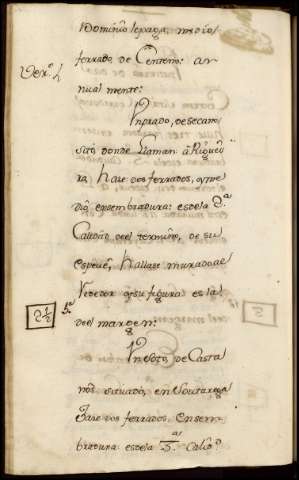 Dominio le paga, medio
ferrado de Centeno: an
nualmente:
Un prado, de secano
sito donde llaman â Riguei
ra, haze dos ferrados, y me
dio ensembradura: es de la 2ª
Calidad del termino, de su
espezie, hallase murado al
rrededor y su figura es la
del margen:
2½
5ª
Un Soto, de Casta
nos, situado, en Soutarega
haze dos ferrados, ensem
bradura: es de la 3ª Calid.